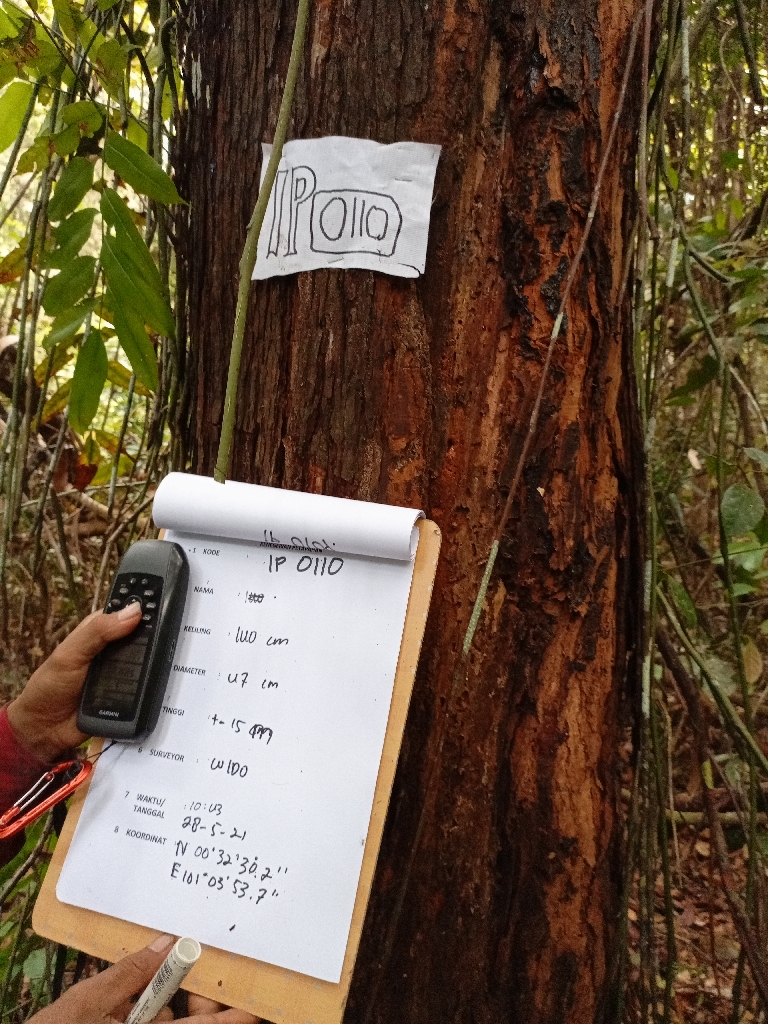 IP 0110
1 KODE IP 0110
NAMA :
KELILING : 140 cm
DIAMETER : 47 cm
TINGGI : +- 15 m
6 SURVEYOR : WIDO
7 WAKTU/ : 10:43
TANGGAL 28-5-21
8 KOORDINAT N 00°32'30.2"
E 101°03'53.7"
GARMIN